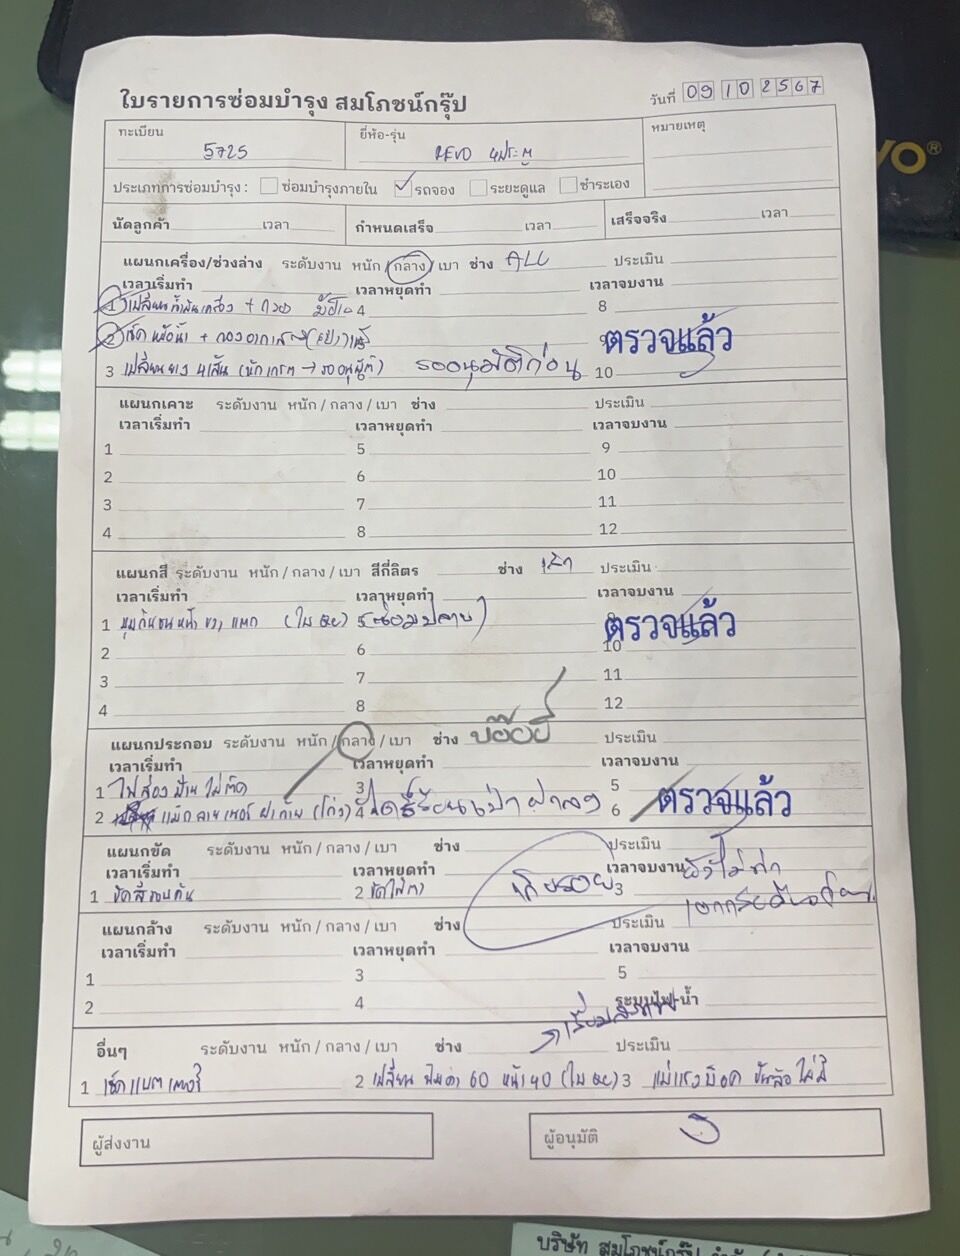 ใบรายการซ่อมบำรุง สมโภชน์กรุ๊ป
วันที่ 09 10 2567
ทะเบียน 5725
ยี่ห้อ-รุ่น REVO 4ประตู
หมายเหตุ
VO®
ประเภทการซ่อมบำรุง : ซ่อมบำรุงภายใน รถจอง ระยะดูแล ชำระเอง
นัดลูกค้า เวลา กำหนดเสร็จ เวลา เสร็จจริง เวลา
แผนกเครื่อง/ช่วงล่าง ระดับงาน หนัก/กลาง/เบา ช่าง ALL ประเมิน
เวลาเริ่มทำ เวลาหยุดทำ เวลาจบงาน
1 เปลี่ยนน้ำมันเครื่อง + กรอง 4 8
2 เช็คหม้อน้ำ + กรองอากาศ 9 ตรวจแล้ว
3 เปลี่ยนยาง 4เส้น รออนุมัติก่อน 10
แผนกเคาะ ระดับงาน หนัก / กลาง / เบา ช่าง ประเมิน
เวลาเริ่มทำ เวลาหยุดทำ เวลาจบงาน
1 5 9
2 6 10
3 7 11
4 8 12
แผนกสี ระดับงาน หนัก / กลาง / เบา สีกี่ลิตร ช่าง ประเมิน
เวลาเริ่มทำ เวลาหยุดทำ เวลาจบงาน
1 มุมกันชนหน้า ขวา แตก 5 9 ตรวจแล้ว
2 6 10
3 7 11
4 8 12
แผนกประกอบ ระดับงาน หนัก / กลาง / เบา ช่าง ประเมิน
เวลาเริ่มทำ เวลาหยุดทำ เวลาจบงาน
1 ไฟส่องป้ายไม่ติด 3 5
2 4 6 ตรวจแล้ว
แผนกขัด ระดับงาน หนัก / กลาง / เบา ช่าง ประเมิน
เวลาเริ่มทำ เวลาหยุดทำ เวลาจบงาน
1 ขัดสีรอบคัน 2 ขัดไฟตา เก็บรอย 3
แผนกล้าง ระดับงาน หนัก / กลาง / เบา ช่าง ประเมิน
เวลาเริ่มทำ เวลาหยุดทำ เวลาจบงาน
1 3 5
2 4 ระบบไฟ-น้ำ
อื่นๆ ระดับงาน หนัก / กลาง / เบา ช่าง ประเมิน
1 เช็คแบตเตอรี่ 2 เปลี่ยน ฟิล์มดำ 60 หน้า 40 3 แม่แรงบล็อค ขันล้อ ไม่มี
ผู้ส่งงาน ผู้อนุมัติ
บริษัท สมโภชน์กรุ๊ป จำกัด